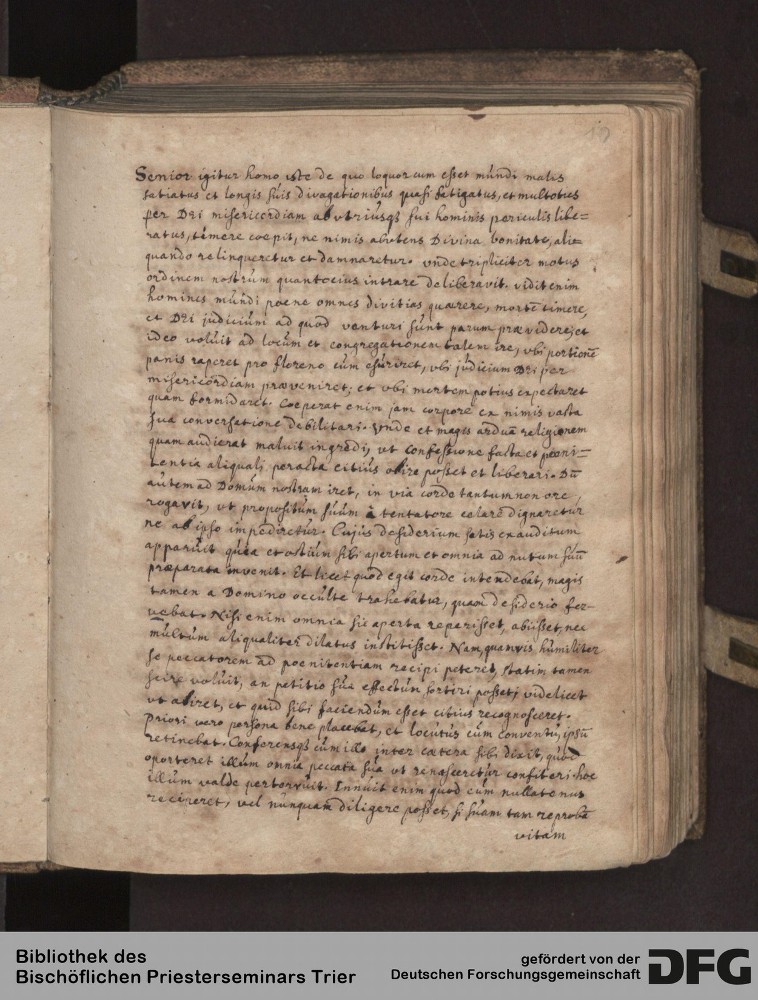 19
Senior igitur homo iste de quo loquor cum esset mundi malis
satiatus et longis suis divagationibus quasi fatigatus, et multoties
per Dei misericordiam ab utriusqs sui hominis periculis libe=
ratus, timere coepit, ne nimis abutens Divina bonitate, ali=
quando relinqueretur et damnaretur. unde tripliciter motus
ordinem nostrum quantocius intrare deliberavit. vidit enim
homines mundi poene omnes divitias quaerere, morte timere,
et Dei judicium ad quod venturi sunt parum praevidere; et
ideo voluit ad locum et congregationem talem ire, ubi portione
panis raperet pro floreno cum esuriret, ubi judicium Dei per
misericordiam praeveniret; et ubi mortem potius expectaret
quam formidaret. Coeperat enim jam corpore ex nimis vasta
sua conversatione debilitari. Unde et magis arduā religionem
quam audierat maluit ingredi, ut confessione facta et poeni=
tentia aliquali peracta citius obire posset et liberari. Dū
autem ad Domum nostram iret, in via corde tantum non ore,
rogavit, ut propositum suum à tentatore celare dignaretur
ne ab ipso impediretur. Cujus desiderium satis exauditum
apparuit quia et ostium sibi apertum et omnia ad nutum suū
praeparata invenit. Et licet quod egit corde intendebat, magis
tamen a Domino occulte trahebatur, quam desiderio fer-
vebat. Nisi enim omnia sic aperta reperisset, abiisset, nec
multum aliqualiter dilatus institisset. Nam, quamvis humiliter
se peccatorem ad poenitentiam recipi peteret, statim tamen
scire voluit, an petitio sua effectum sortiri posset; videlicet
ut abiret, et quid sibi faciendum esset citius recognosceret.
Priori vero persona bene placebat, et locutus cum conventu, ipsū
retinebat. Conferensqs cum illo inter caetera sibi dixit, quod
oporteret illum omnia peccata sua ut renasceretur confiteri. hoc
illum valde perterruit. Innuit enim quod eum nullatenus
reciperet, vel nunquam diligere posset, si suam tam reprobā
vitam
Bibliothek des
Bischöflichen Priesterseminars Trier
gefördert von der
Deutschen Forschungsgemeinschaft
DFG